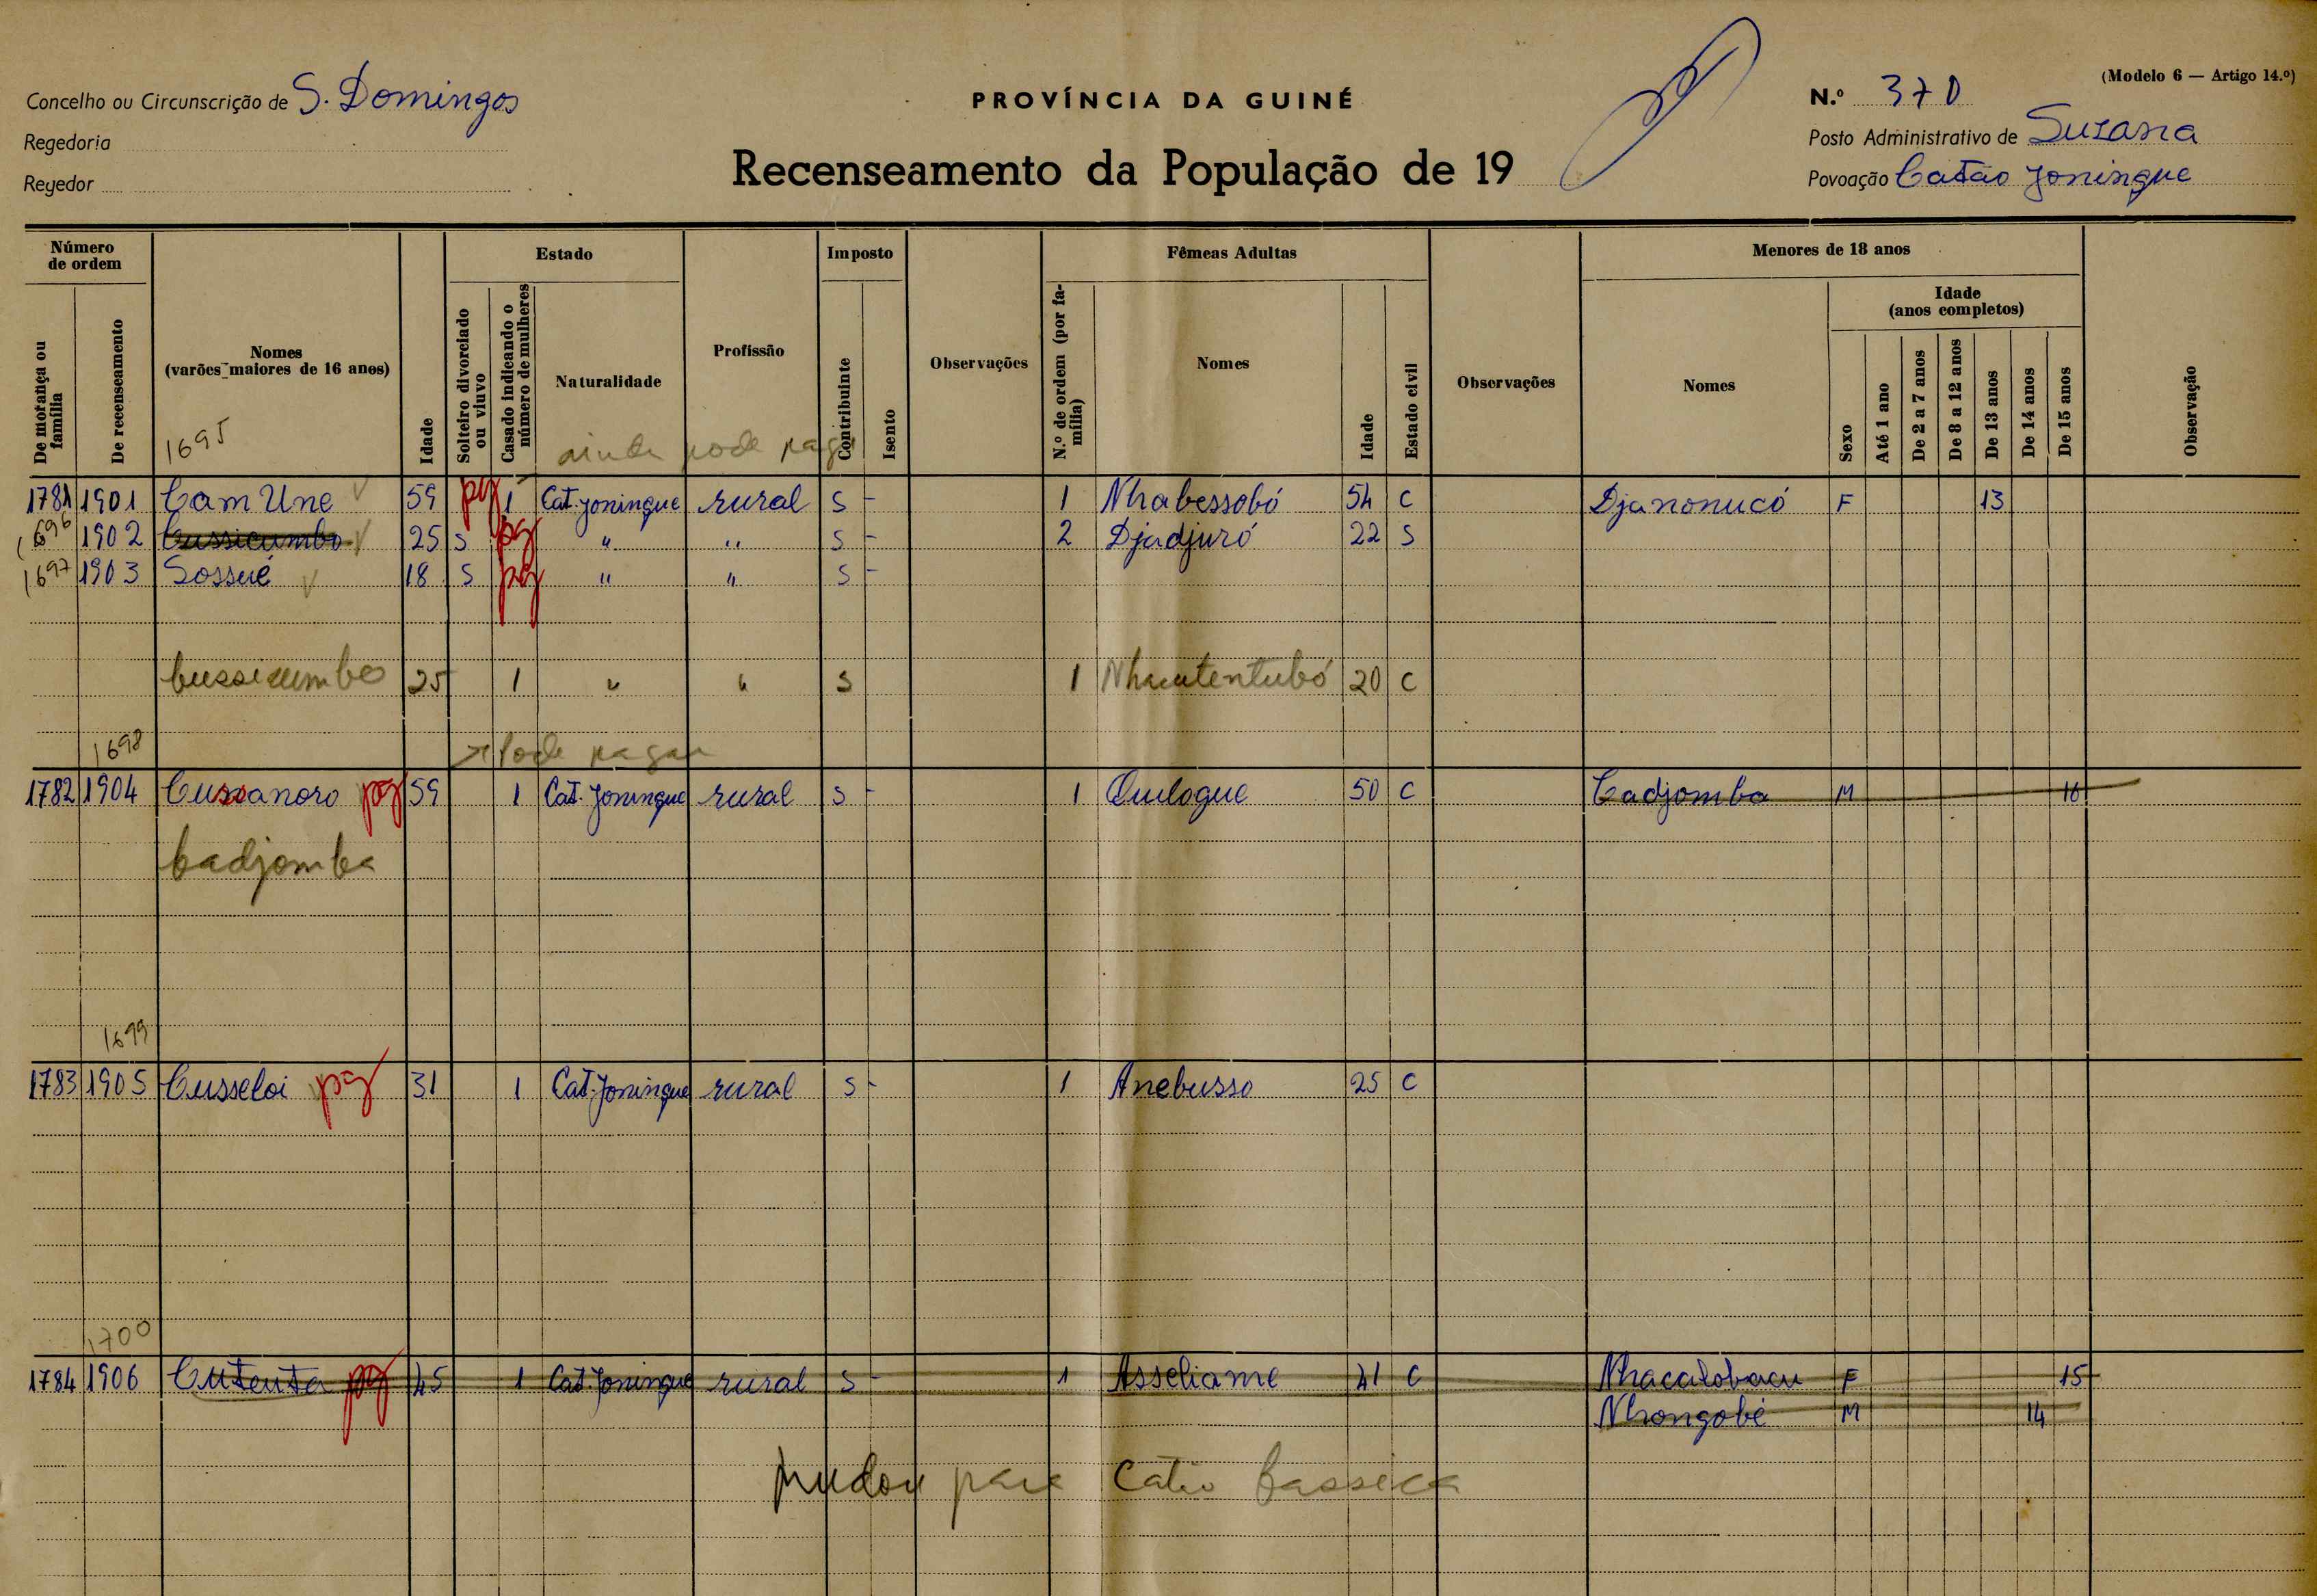 (Modelo 6 — Artigo 14.º)
Concelho ou Circunscrição de S. Domingos
PROVÍNCIA DA GUINÉ
N.º 370
Regedoria
Posto Administrativo de Suzana
Regedor
Recenseamento da População de 19
Povoação Catão Joningue
Número de ordem
Estado
Imposto
Fêmeas Adultas
Menores de 18 anos
De morança ou família
De recenseamento
Nomes (varões maiores de 16 anos)
Idade
Solteiro divorciado ou viuvo
Casado indicando o número de mulheres
Naturalidade
Profissão
Contribuinte
Isento
Observações
N.º de ordem (por família)
Nomes
Idade
Estado civil
Observações
Nomes
Sexo
Idade (anos completos)
Até 1 ano
De 2 a 7 anos
De 8 a 12 anos
De 13 anos
De 14 anos
De 15 anos
Observação
1695 ainda pode pagar
1781 1901 Cam Une 59 pg 1 Cat. Joningue rural S - 1 Nhabessobó 54 C Djanonucó F 13
1696 1902 Cussicumbo 25 S pg " " S - 2 Djadjuró 22 S
1697 1903 Sossué 18 S pg " " S -
Cussicumbo 25 1 " " S 1 20 C
1698 Pode pagar
1782 1904 Cussanoro pg 59 1 Cat. Joningue rural S - 1 Quilogue 50 C Cadjomba M 16
Cadjomba
1699
1783 1905 Cusseloi pg 31 1 Cat. Joningue rural S - 1 Anebusso 25 C
1700
1784 1906 Cutenta pg 45 1 Cat. Joningue rural S - 1 Asseliame 41 C Nhacalobacu F 15
Nhongobé M 14
Mudou para Catão Basseca